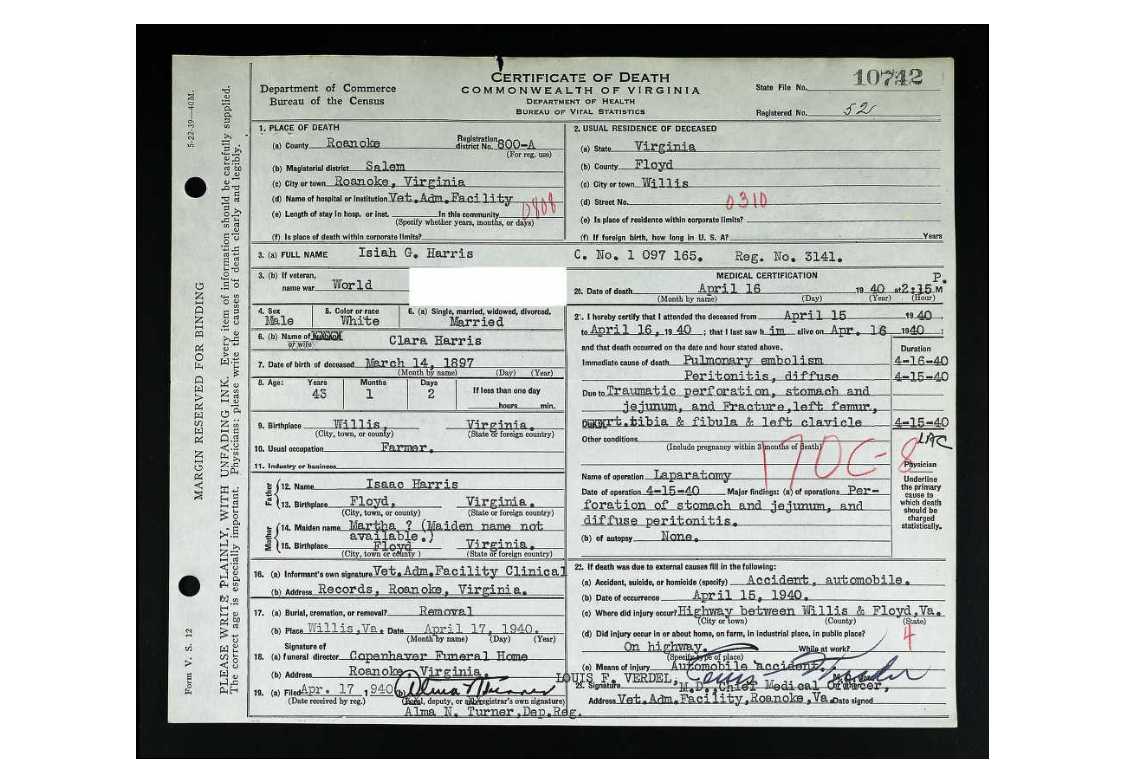 10742
CERTIFICATE OF DEATH
COMMONWEALTH OF VIRGINIA
DEPARTMENT OF HEALTH
BUREAU OF VITAL STATISTICS
Department of Commerce
Bureau of the Census
State File No.
Registered No. 52
5-22-39—40M.
MARGIN RESERVED FOR BINDING
PLEASE WRITE PLAINLY, WITH UNFADING INK. Every item of information should be carefully supplied.
The correct age is especially important. Physicians: please write the causes of death clearly and legibly.
Form V. S. 12
1. PLACE OF DEATH
(a) County Roanoke Registration district No. 800-A
(For reg. use)
(b) Magisterial district Salem
(c) City or town Roanoke, Virginia
(d) Name of hospital or institution Vet.Adm.Facility
0808
(e) Length of stay in hosp. or inst. In this community
(Specify whether years, months, or days)
(f) Is place of death within corporate limits?
2. USUAL RESIDENCE OF DECEASED
(a) State Virginia
(b) County Floyd
(c) City or town Willis
(d) Street No. 0310
(e) Is place of residence within corporate limits?
(f) If foreign birth, how long in U. S. A? Years
3. (a) FULL NAME Isiah G. Harris C. No. 1 097 165. Reg. No. 3141.
3. (b) If veteran,
name war World
4. Sex 5. Color or race 6. (a) Single, married, widowed, divorced.
Male White Married
6. (b) Name of
or wife Clara Harris
7. Date of birth of deceased March 14, 1897
(Month by name) (Day) (Year)
8. Age: Years Months Days If less than one day
43 1 2
hours min.
9. Birthplace Willis, Virginia.
(City, town, or county) (State or foreign country)
10. Usual occupation Farmer.
11. Industry or business
Father
12. Name Isaac Harris
13. Birthplace Floyd, Virginia.
(City, town, or county) (State or foreign country)
Mother
14. Maiden name Martha ? (Maiden name not
available.)
15. Birthplace Floyd Virginia.
(City, town or county) (State or foreign country)
16. (a) Informant's own signature Vet.Adm.Facility Clinical
(b) Address Records, Roanoke, Virginia.
17. (a) Burial, cremation, or removal? Removal
(b) Place Willis,Va. Date April 17, 1940.
(Month by name) (Day) (Year)
Signature of
18. (a) funeral director Copenhaver Funeral Home
(b) Address Roanoke, Virginia.
19. (a) Filed Apr. 17, 1940 (b) Alma N Turner
(Date received by reg.) (Local, deputy, or sub-registrar's own signature)
Alma N. Turner,Dep.Reg.
MEDICAL CERTIFICATION
20. Date of death April 16 1940 at 2:15 P. M
(Month by name) (Day) (Year) (Hour)
21. I hereby certify that I attended the deceased from April 15 1940
to April 16, 1940; that I last saw him alive on Apr. 16 1940;
and that death occurred on the date and hour stated above.
Duration
Immediate cause of death Pulmonary embolism 4-16-40
Peritonitis, diffuse 4-15-40
Due to Traumatic perforation, stomach and
jejunum, and Fracture,left femur,
rt.tibia & fibula & left clavicle 4-15-40
Other conditions
(Include pregnancy within 3 months of death)
170C-8
Physician
Underline
the primary
cause to
which death
should be
charged
statistically.
Name of operation Laparatomy
Date of operation 4-15-40 Major findings: (a) of operations Per-
foration of stomach and jejunum, and
diffuse peritonitis.
(b) of autopsy None.
22. If death was due to external causes fill in the following:
(a) Accident, suicide, or homicide (specify) Accident, automobile.
(b) Date of occurrence April 15, 1940.
(c) Where did injury occur? Highway between Willis & Floyd,Va.
(City or town) (County) (State)
4
(d) Did injury occur in or about home, on farm, in industrial place, in public place?
On highway. While at work?
(Specify type of place)
(e) Means of injury Automobile accident.
LOUIS F. VERDEL,
23. Signature M.D., Chief Medical Officer,
Address Vet.Adm.Facility,Roanoke,Va. Date signed